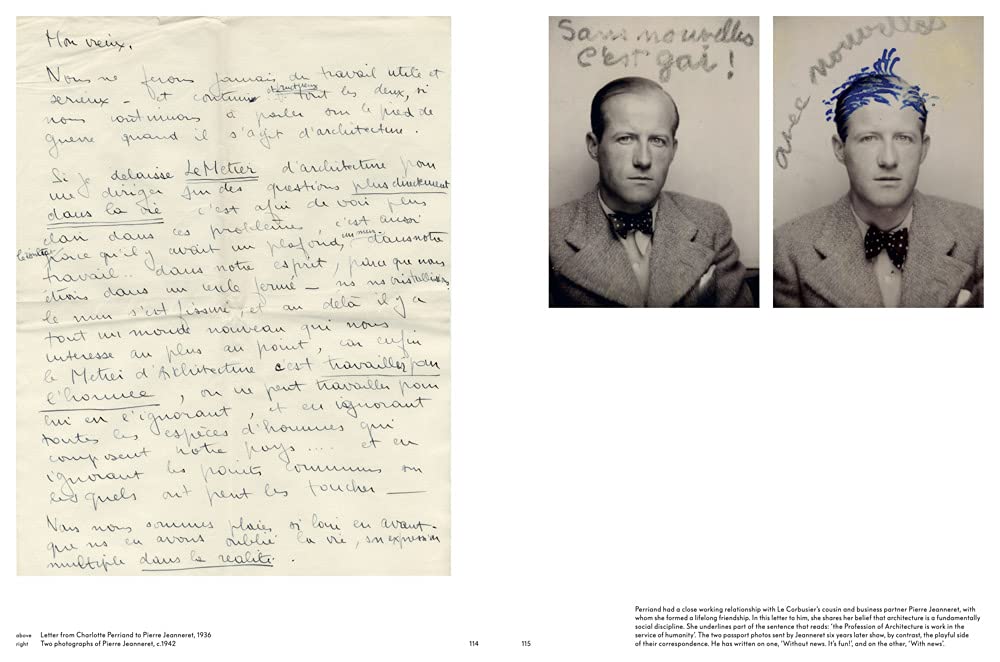 Mon vieux,
Nous ne ferons jamais du travail utile et
serieux — et constructeux tout les deux, si
nous continuons à parler sur le pied de
guerre quand il s'agit d'architecture.
Si je delaisse Le Metier d'architecture pour
me diriger sur des questions plus directement
dans la vie c'est afin de voir plus
clair dans ces problèmes, c'est aussi
parce qu'il y avait un plafond, un mur, dans notre
travail.. dans notre esprit, parce que nous
étions dans un cercle fermé — ns ns cristallisions
le mur s'est fissuré, et au delà il y a
tout un monde nouveau qui nous
interesse au plus au point, car enfin
le Metier d'Architecture c'est travailler pour
l'homme, on ne peut travailler pour
lui en l'ignorant, et en ignorant
toutes les espèces d'hommes qui
composent notre pays .... et en
ignorant les points communs ou
lesquels ont peut les toucher —
Nous nous sommes placés si loin en avant.
que ns en avons oublié la vie, son expression
multiple dans la realité.
Sans nouvelles
C'est gai!
avec nouvelles
above Letter from Charlotte Perriand to Pierre Jeanneret, 1936
right Two photographs of Pierre Jeanneret, c.1942
114
115
Perriand had a close working relationship with Le Corbusier's cousin and business partner Pierre Jeanneret, with
whom she formed a lifelong friendship. In this letter to him, she shares her belief that architecture is a fundamentally
social discipline. She underlines part of the sentence that reads: 'the Profession of Architecture is work in the
service of humanity'. The two passport photos sent by Jeanneret six years later show, by contrast, the playful side
of their correspondence. He has written on one, 'Without news. It's fun!', and on the other, 'With news'.